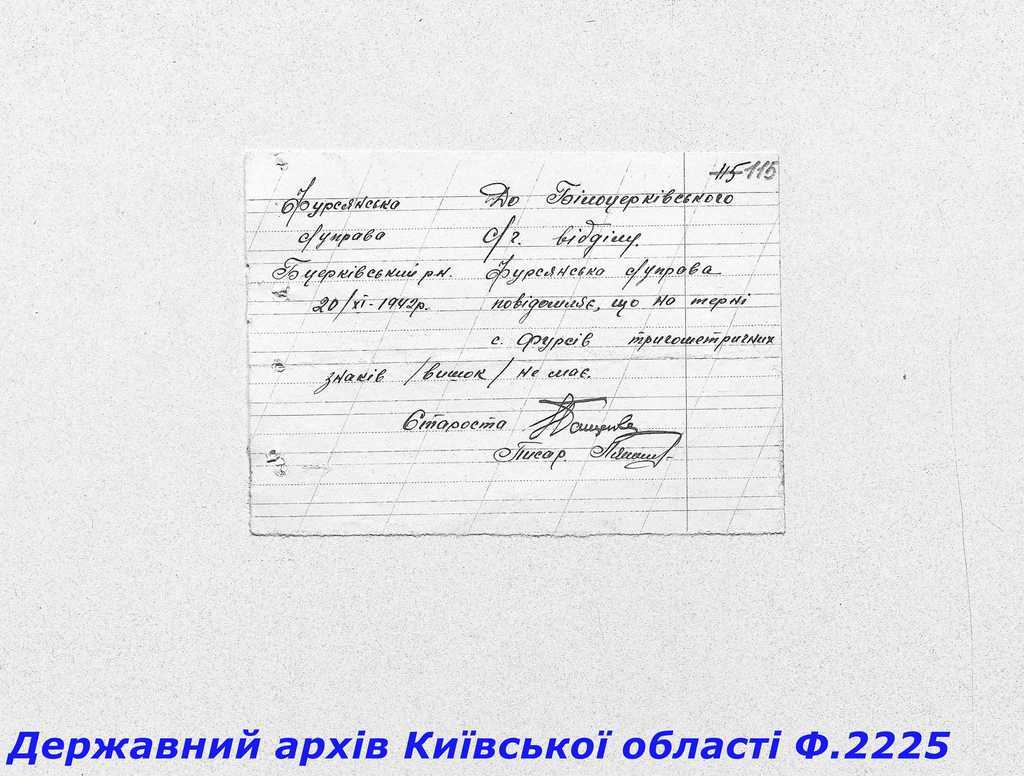 115 115
Фурсянська
с/управа
Бцерківський рн.
20/XI-1942р.
До Білоцерківського
с/г. відділу.
Фурсянська с/управа
повідомляє, що на терні
с. Фурсів тригометричних
знаків /вишок/ не має.
Староста
Писар.
Державний архів Київської області Ф.2225